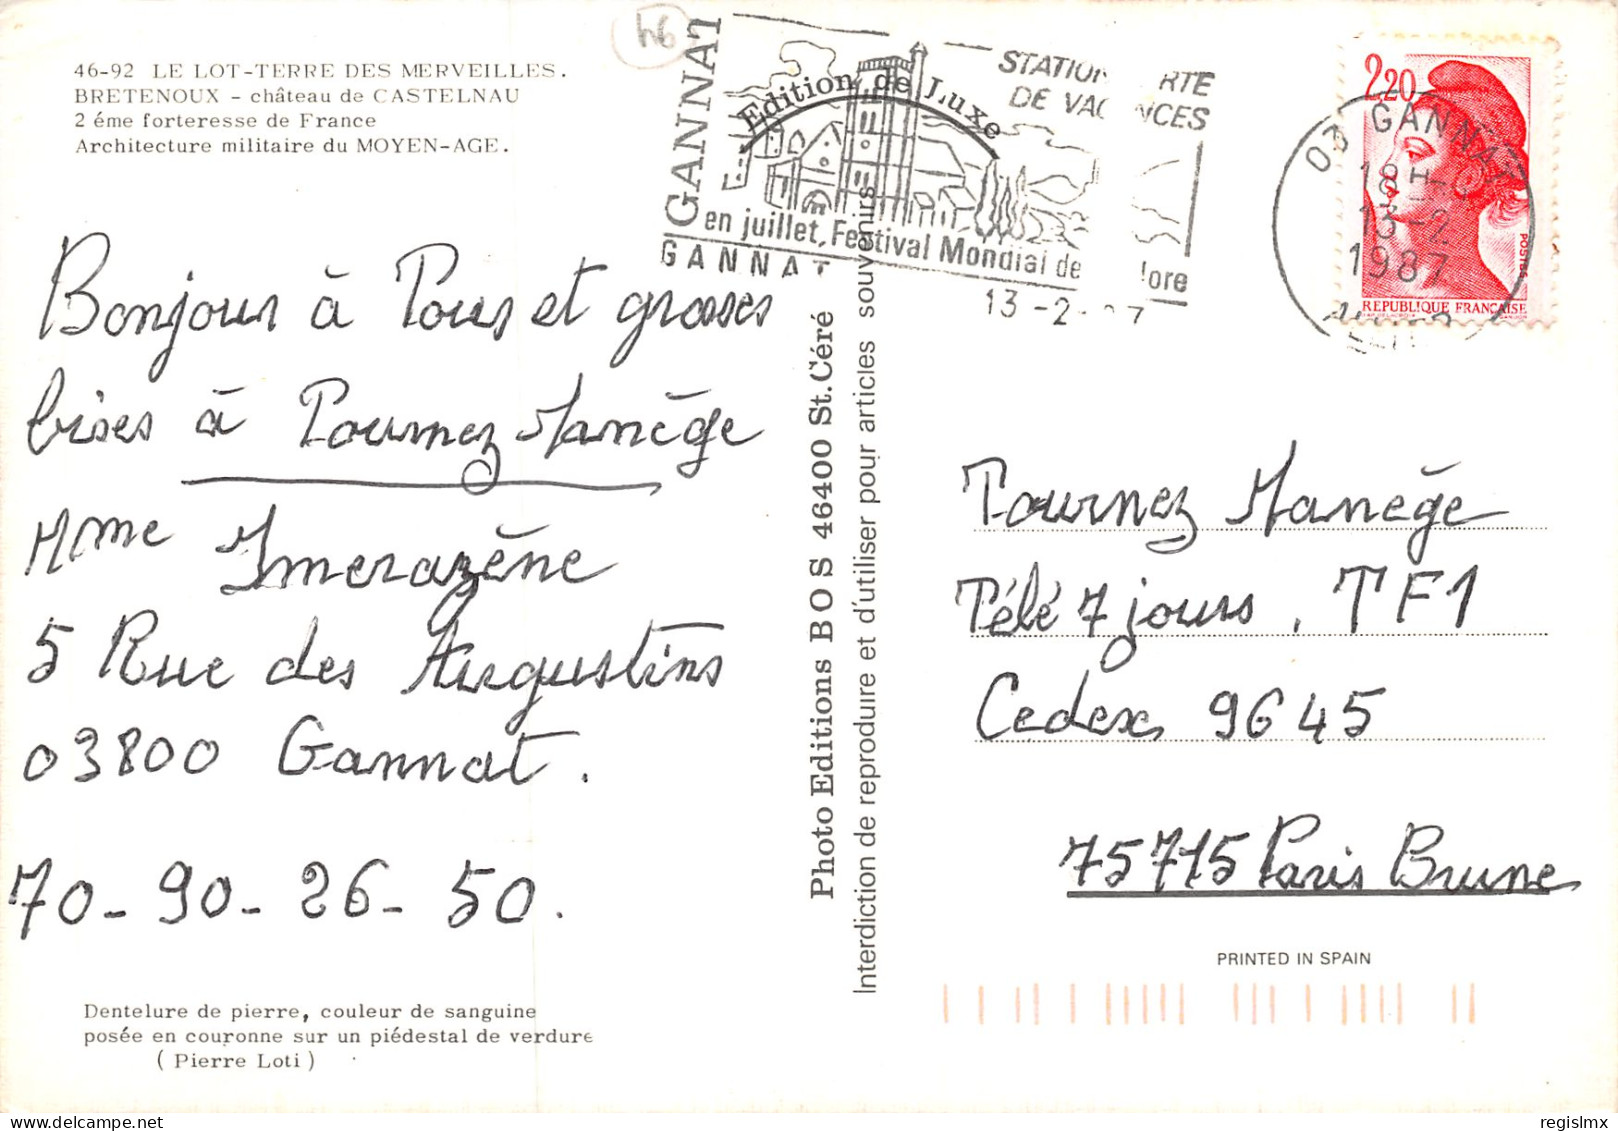 46-92 LE LOT-TERRE DES MERVEILLES.
BRETENOUX - château de CASTELNAU
2 éme forteresse de France
Architecture militaire du MOYEN-AGE.
46
GANNAT
STATION VERTE
DE VACANCES
Edition de Luxe
en juillet, Festival Mondial de
GANNAT
13 -2-
2,20
REPUBLIQUE FRANÇAISE
POSTES
03 GANNAT
18H
13-2
1987
ALLIER
Bonjour à Tous et grosses
bises à Tournez Manège
Mme Imerazène
5 Rue des Augustins
03800 Gannat.
70-90-26-50.
Dentelure de pierre, couleur de sanguine
posée en couronne sur un piédestal de verdure
( Pierre Loti )
Photo Editions BOS 46400 St.Céré
Interdiction de reproduire et d'utiliser pour articles souvenirs
Tournez Manège
Télé 7 jours. TF1
Cedex 9645
75715 Paris Brune
PRINTED IN SPAIN
regislmx
Delcampe.net